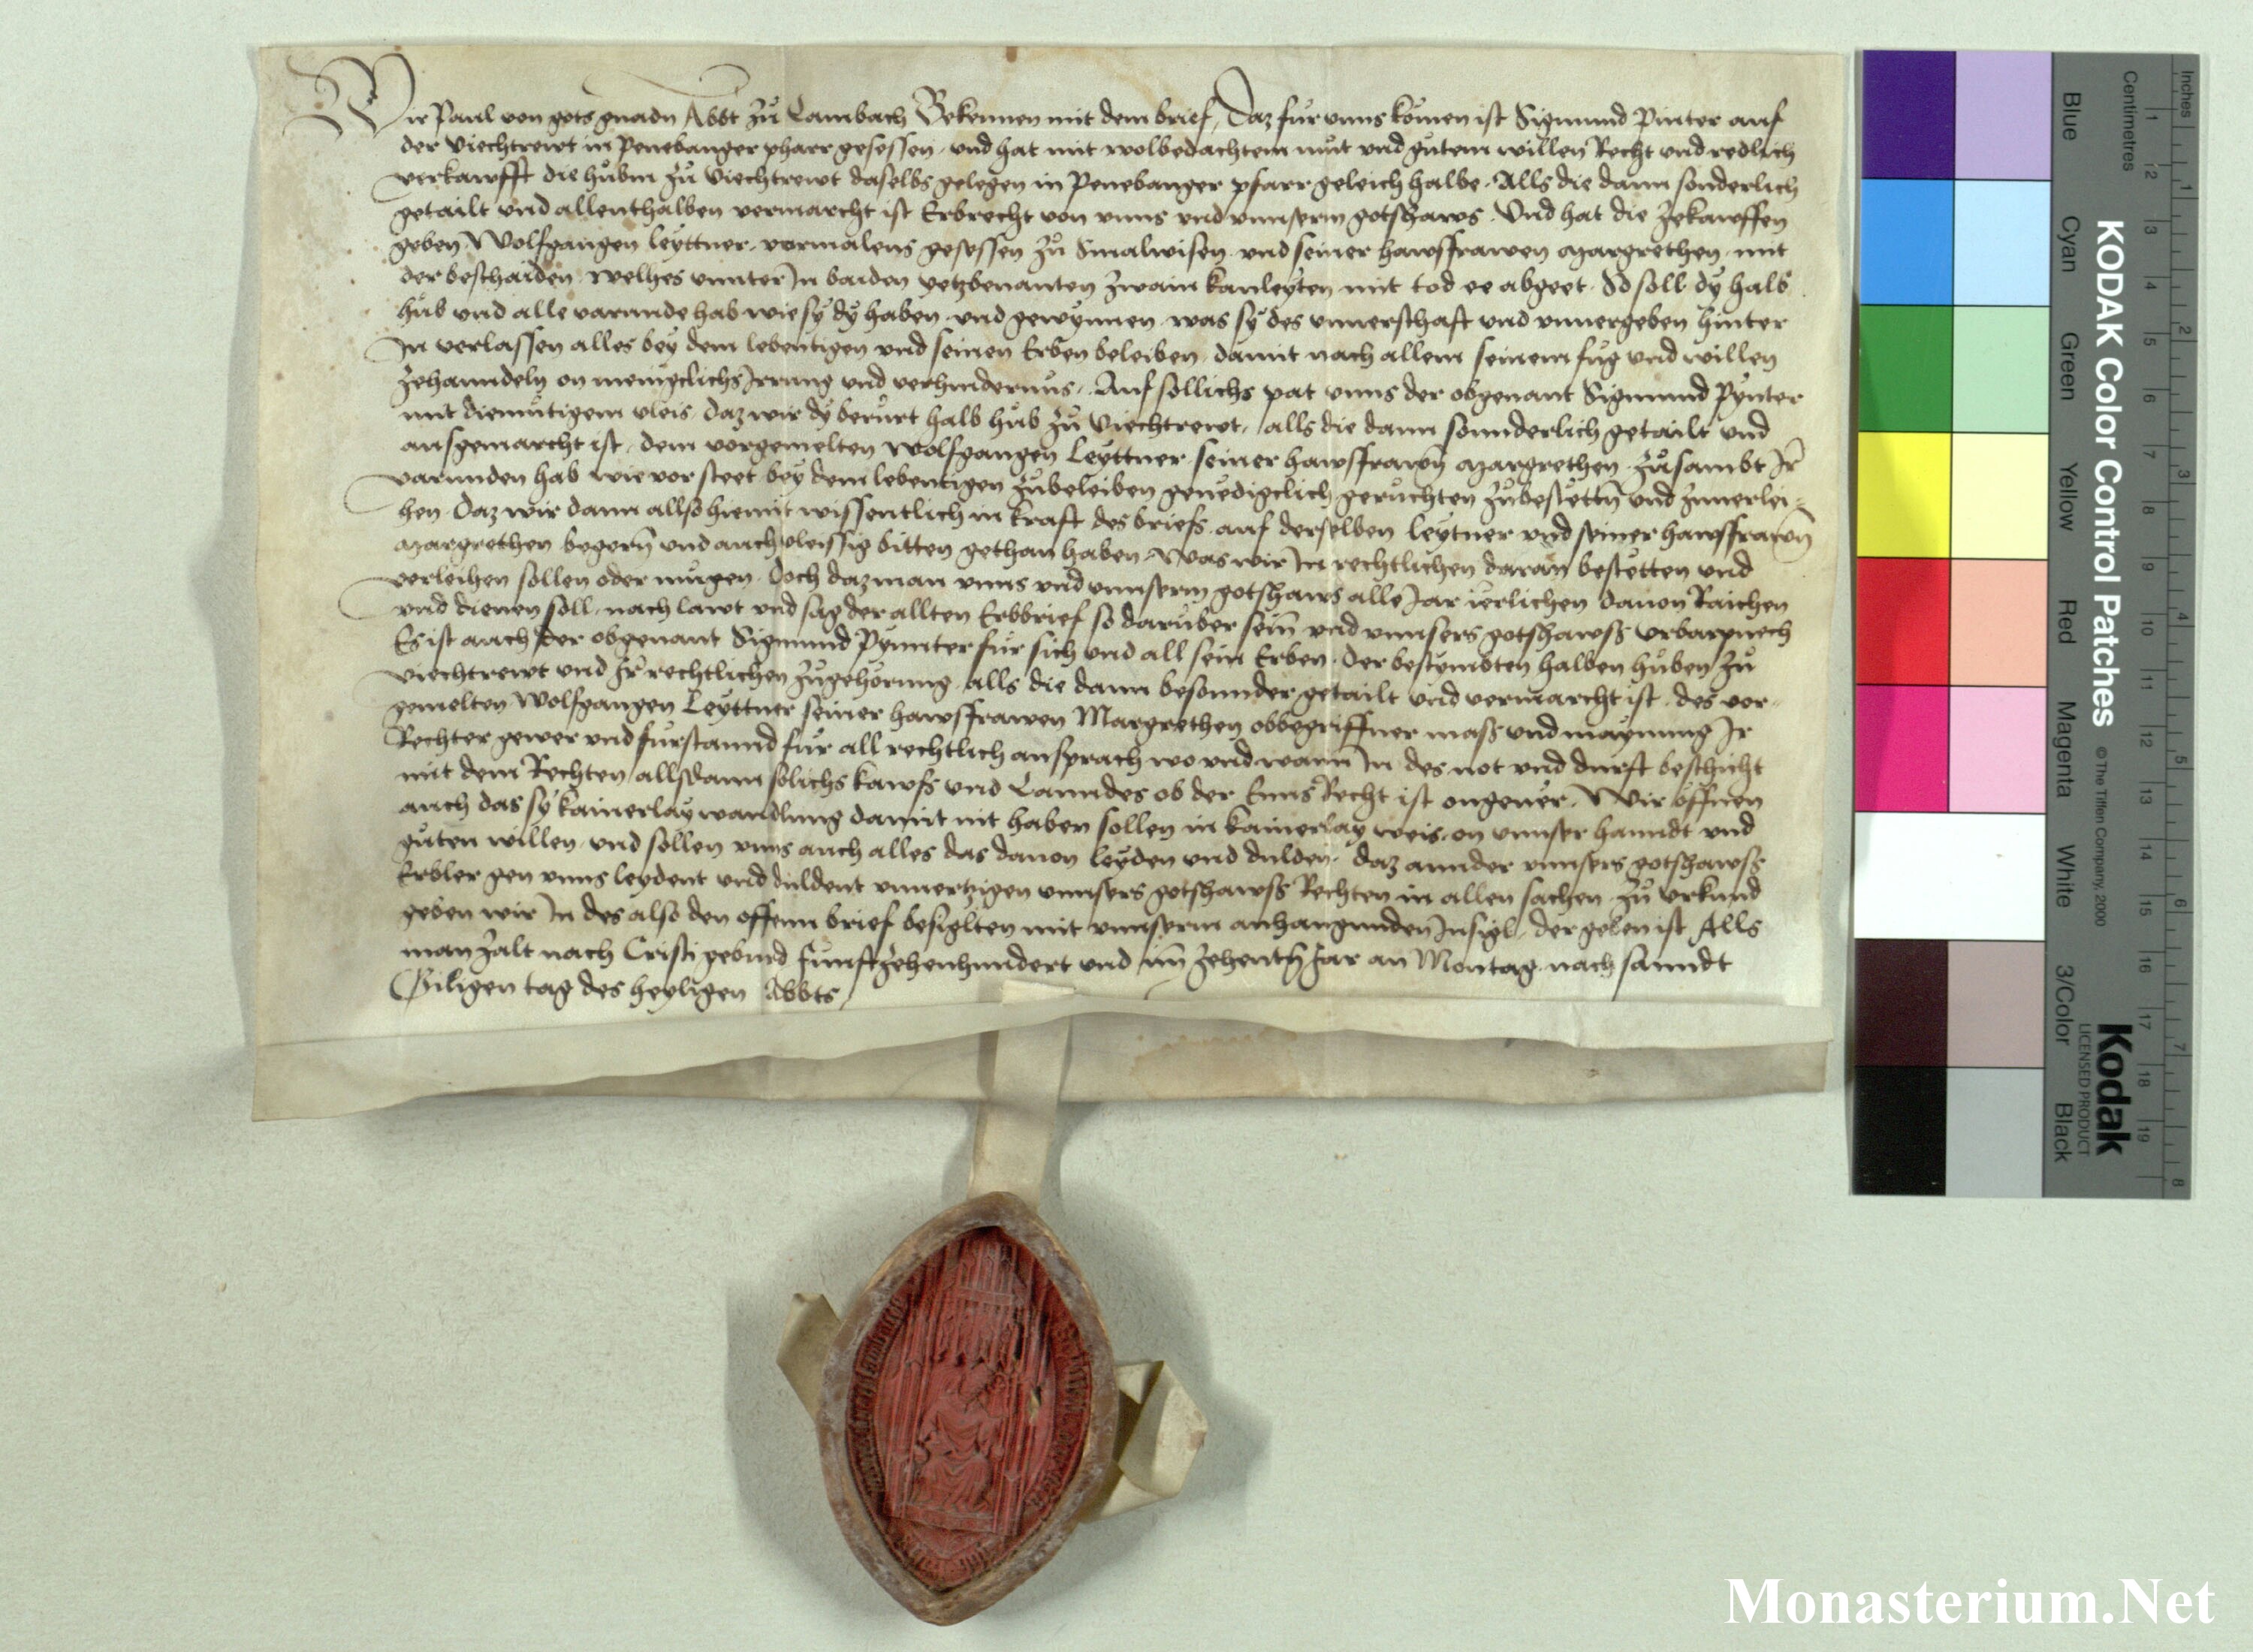 Wir Paul von gots gnadn Abbt zů Lambach Bekennen mit dem brief, Daz für unns komen ist Sigmund Pinter auf
der Viechtrewt in Penebanger pharr gesessen, und hat mit wolbedachtem můt und gůtem willen Recht und redlich
verkawfft die hůbm zů Viechtrewt daselbs gelegen in Penebanger pfarr geleich halbe. Alls die dann sonderlich
getailt und allenthalben vermarcht ist Erbrecht von unns und unnserm gotshaws. Und hat die zekawffen
geben Wolfgangen Leyttner, vormalens gesessen zů Smalwisen, und seiner hawsfrawen Margrethen, mit
der beschaiden, welhes unnter In baiden yetzbenanten zwain kanleyten mit tod ee abgeet. So soll dy halb
hůb und alle varunde hab wie sy dy haben und gewynnen, was sy des unnerschaft und unnergeben hinter
In verlassen alles bey dem lebentigen und seinen Erben beleiben, damit nach allem seinem fůg und willen
zehanndeln on menigclichs Irrung und verhindernůs. Auf sollichs pat unns der obgenant Sigmund Pynter
mit diemůtigem vleis, daz wir dy berůrt halb hůb zů Viechtrewt, alls die dann sonnderlich getailt und
ausgemarcht ist, dem vorgemelten Wolfgangen Leyttner seiner hawsfrawn Margrethen, zůsambt Ir
varunden hab wie vor steet bey dem lebentigen zůbeleiben genedigclich gerůchten zůbestettn und zuuerlei-
hen. Daz wir dann allso hiemit wissentlich in kraft des briefs auf derselben Leytner und seiner hawsfrawn
Margrethen begern und auch vleissig bitten gethan haben. Was wir In rechtlichen daran bestetten und
verleihen sollen oder mugen. Doch daz man unns und unnserm gotshaws alle Iar ierlichen dauon Raichen
und dienen soll, nach lawt und sag der allten Erbbrief so daruber sein und unnsers gotshawss Urbarpuech
Es ist auch der obgenant Sigmund Pynnter für sich und all sein Erben, der bestymbten halben hůben zů
Viechtrewt und Ir rechtlichen zůgehörung, alls die dann besonnder getailt und vermarcht ist, des vor-
gemelten Wolfgangen Leyttner seiner hawsfrawen Margrethen obbegriffner mass und maynung Ir
Rechter gewer und fürstannd für all rechtlich ansprach wo und wann In des not und durft beschicht
mit dem Rechten, allsdann solichs kawfs und Lanndes ob der Enns Recht ist ongeuer. Wir öffnen
auch das sy kainerlay wandlung damit nit haben sollen in kainerlay weis, on unnser hanndt und
gůten willen, und sollen unns auch alles das dauon leyden und dulden, daz annder unnsers gotshawss
Erbler gen unns leydent und duldent unuertzigen unnsers gotshawss Rechten in allen sachen. Zů Urkund
geben wir In des also den offenn brief besiglten mit unnserm anhangunden Insigl, der geben ist Alls
man zalt nach Cristi geburd fünfftzehenhundert und im zehentn Iar an Montag nach sanndt
Giligen tag des heyligen Abbts,
KODAK Color Control Patches
© The Tiffen Company, 2000
Kodak
LICENSED PRODUCT
Blue Cyan Green Yellow Red Magenta White 3/Color Black
Centimetres 1 2 3 4 5 6 7 8 9 10 11 12 13 14 15 16 17 18 19
Inches 1 2 3 4 5 6 7 8
Monasterium.Net